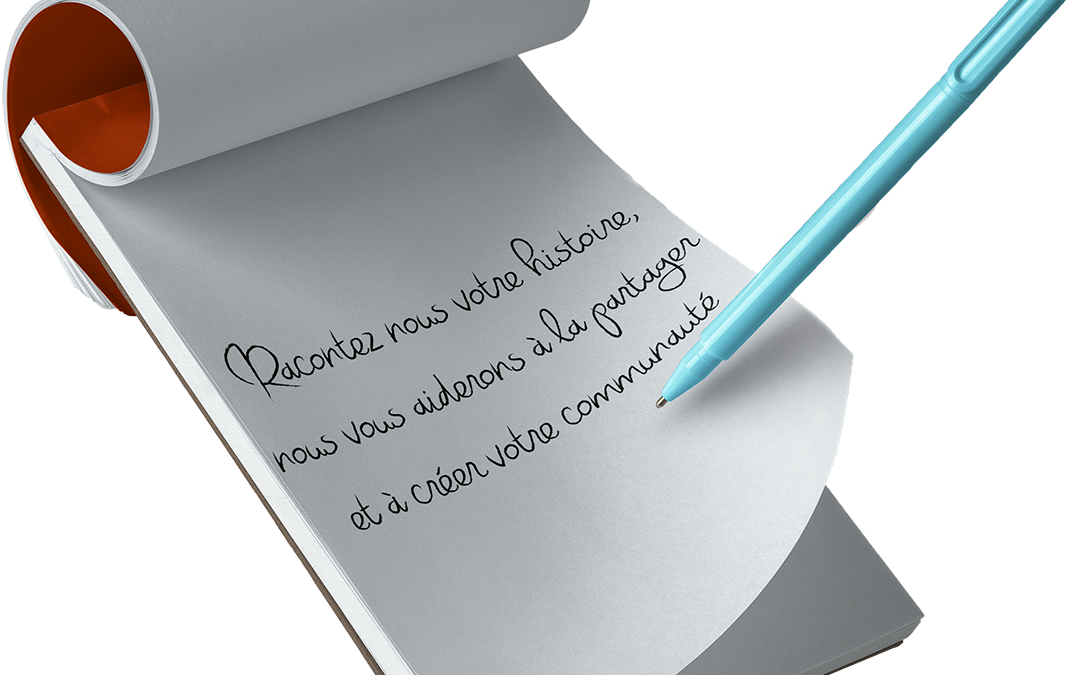 Racontez nous votre histoire,
nous vous aiderons à la partager
et à créer votre communauté